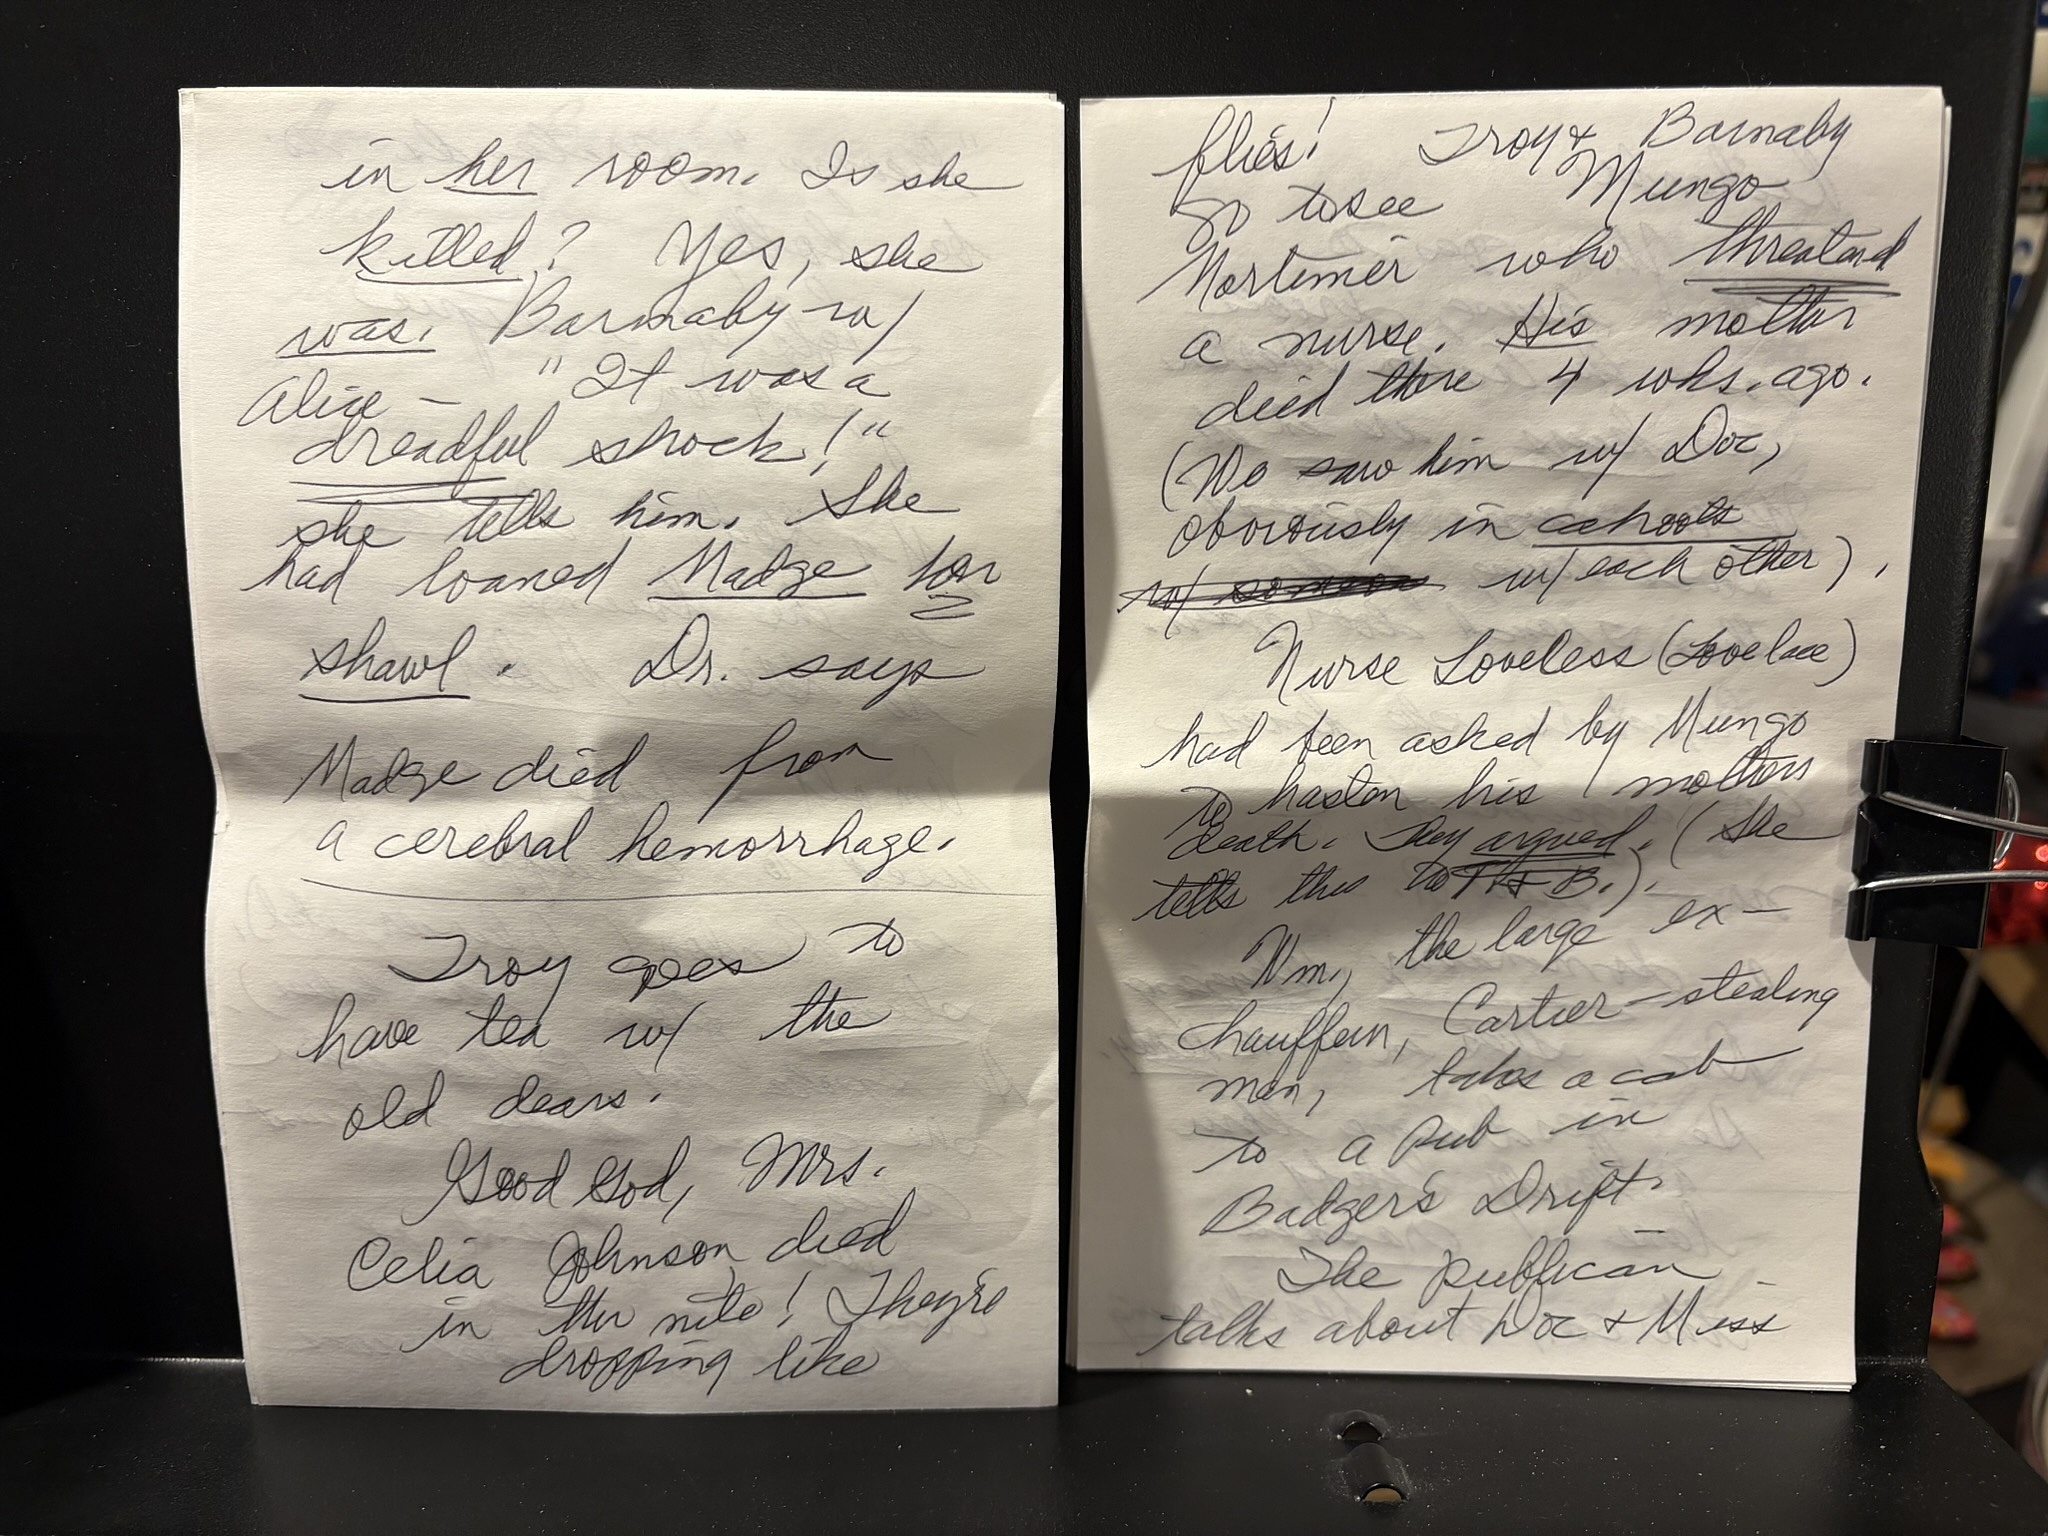 in her room. Is she
killed? Yes, she
was. Barnaby w/
Alice - "It was a
dreadful shock!"
she tells him. She
had loaned Madge her
shawl. Dr. says
Madge died from
a cerebral hemorrhage.
Troy goes to
have tea w/ the
old dears.
Good God, Mrs.
Celia Johnson died
in the nite! They're
dropping like
flies! Troy & Barnaby
go to see Mungo
Mortimer who threatend
a nurse. His mother
died there 4 wks. ago.
(We saw him w/ Doc,
obviously in cahoots
w/ someone w/ each other).
Nurse Loveless (Lovelace)
had been asked by Mungo
to hasten his mothers
death. They argued. (She
tells this to T. & B.).
Wm., the large ex-
chauffeur, Cartier-stealing
man, takes a cab
to a pub in
Badger's Drift.
The publican
talks about Doc & Miss